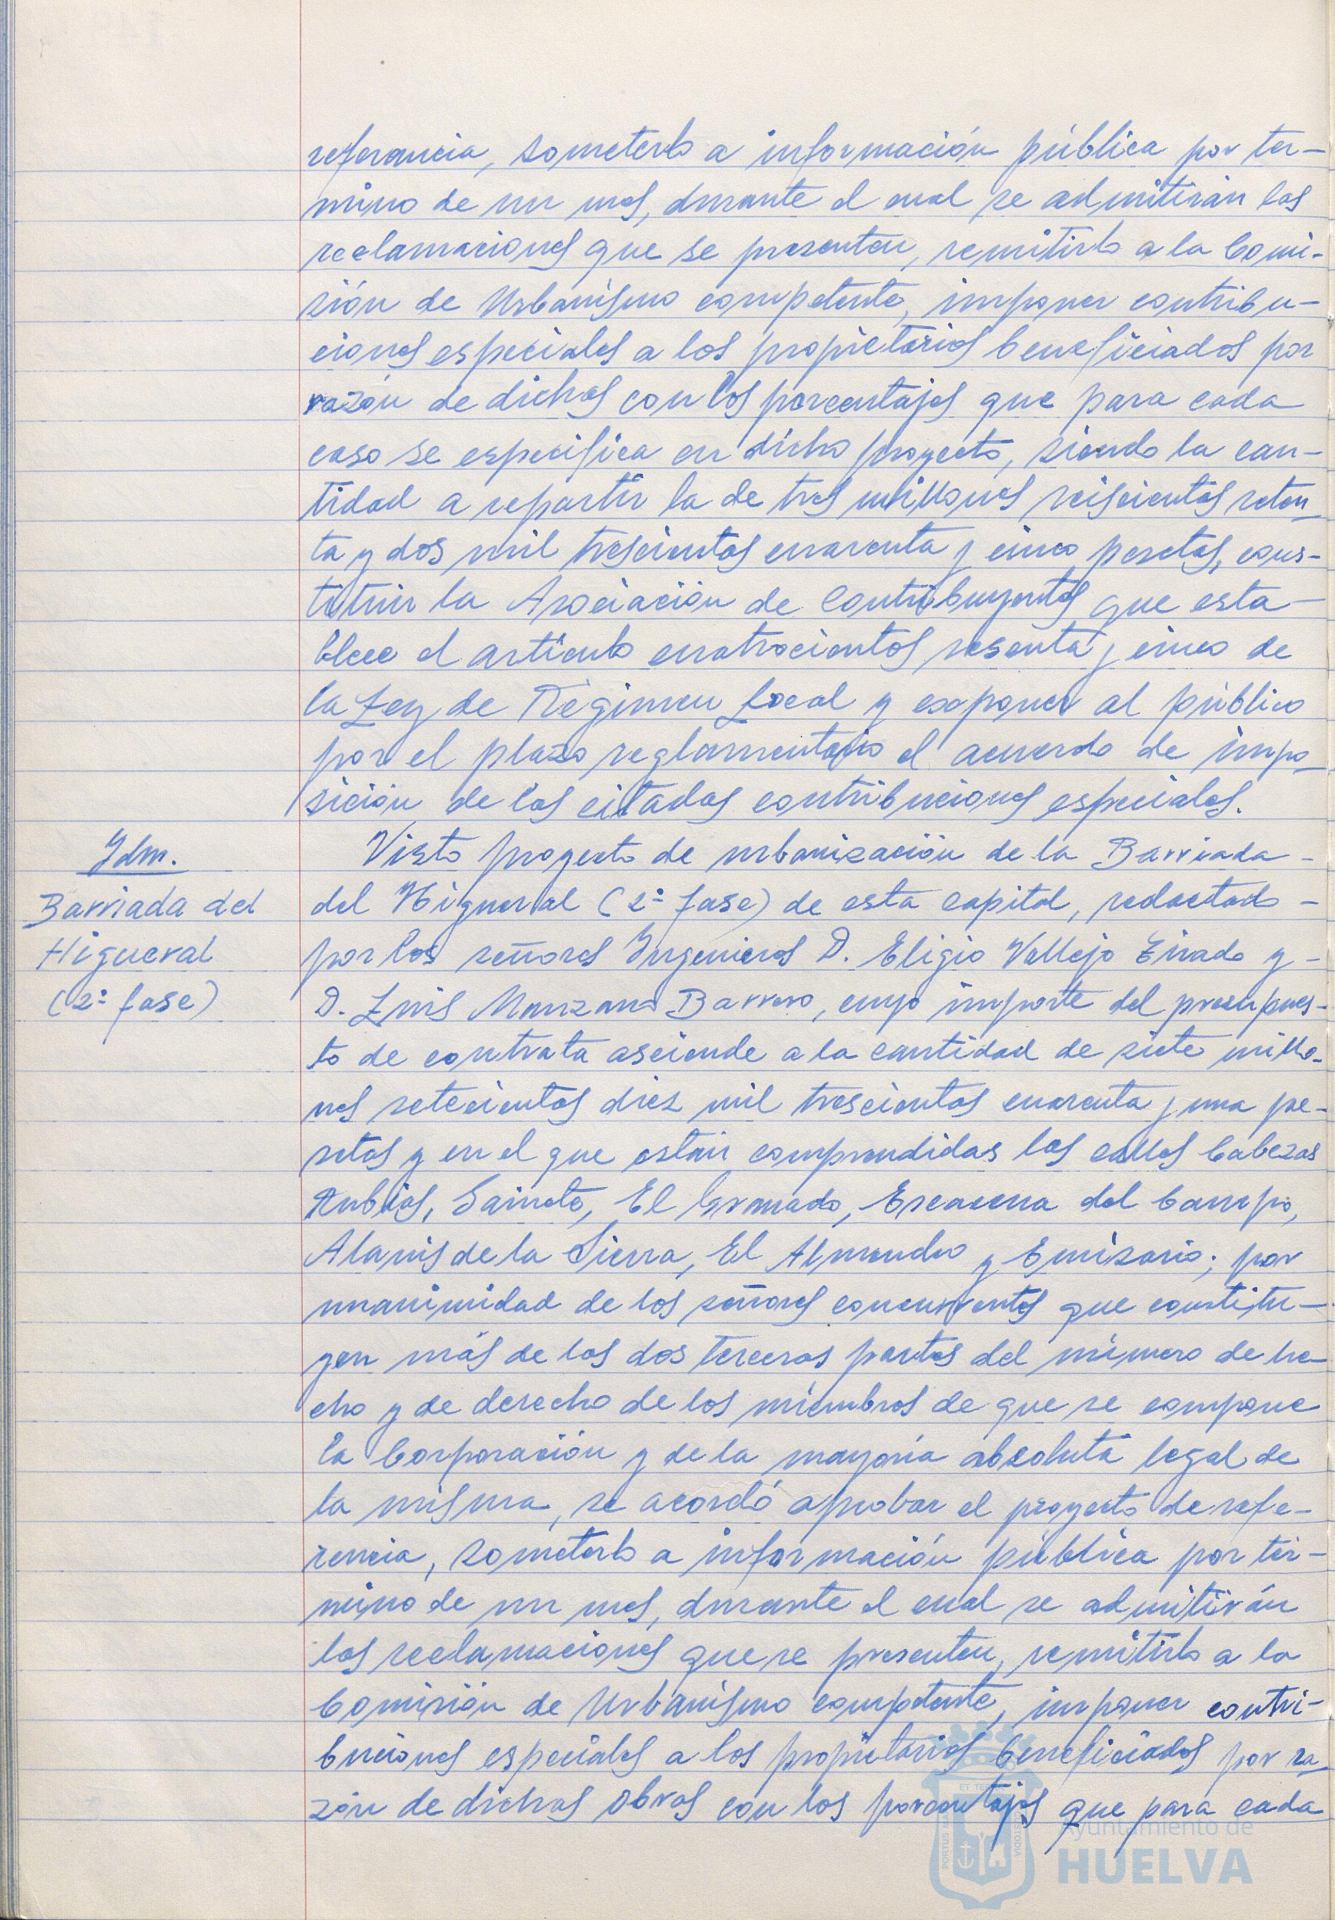 referencia, someterlo a información pública por ter-
mino de un mes, durante el cual se admitirán las
reclamaciones que se presenten, remitirlo a la Comi-
sión de Urbanismo competente, imponer contribu-
ciones especiales a los propietarios beneficiados por
razón de dichas con los porcentajes que para cada
caso se especifica en dicho proyecto, siendo la can-
tidad a repartir la de tres millones seiscientas seten-
ta y dos mil trescientas cuarenta y cinco pesetas, cons-
tituir la Asociación de Contribuyentes que esta-
blece el artículo cuatrocientos sesenta y cinco de
la Ley de Régimen Local y exponer al público
por el plazo reglamentario el acuerdo de impo-
sición de las citadas contribuciones especiales.
Idm.
Barriada del
Higueral
(2ª fase)
Visto proyecto de urbanización de la Barriada -
del Higueral (2ª fase) de esta capital, redactado -
por los señores Ingenieros D. Eligio Vallejo y -
D. Luis Manzano Barrero, cuyo importe del presupues-
to de contrata asciende a la cantidad de siete millo-
nes setecientas diez mil trescientas cuarenta y una pe-
setas y en el que están comprendidas las calles Cabezas
Rubias, Sainete, El Granado, Escacena del Campo,
Alanis de la Sierra, El Almendro y Emisario; por
unanimidad de los señores concurrentes que constitu-
yen más de las dos terceras partes del número de he-
cho y de derecho de los miembros de que se compone
la Corporación y de la mayoría absoluta legal de
la misma, se acordó aprobar el proyecto de refe-
rencia, someterlo a información pública por tér-
mino de un mes, durante el cual se admitirán
las reclamaciones que se presenten, remitirlo a la
Comisión de Urbanismo competente, imponer contri-
buciones especiales a los propietarios beneficiados por ra-
zón de dichas obras con los porcentajes que para cada
Ayuntamiento de
HUELVA